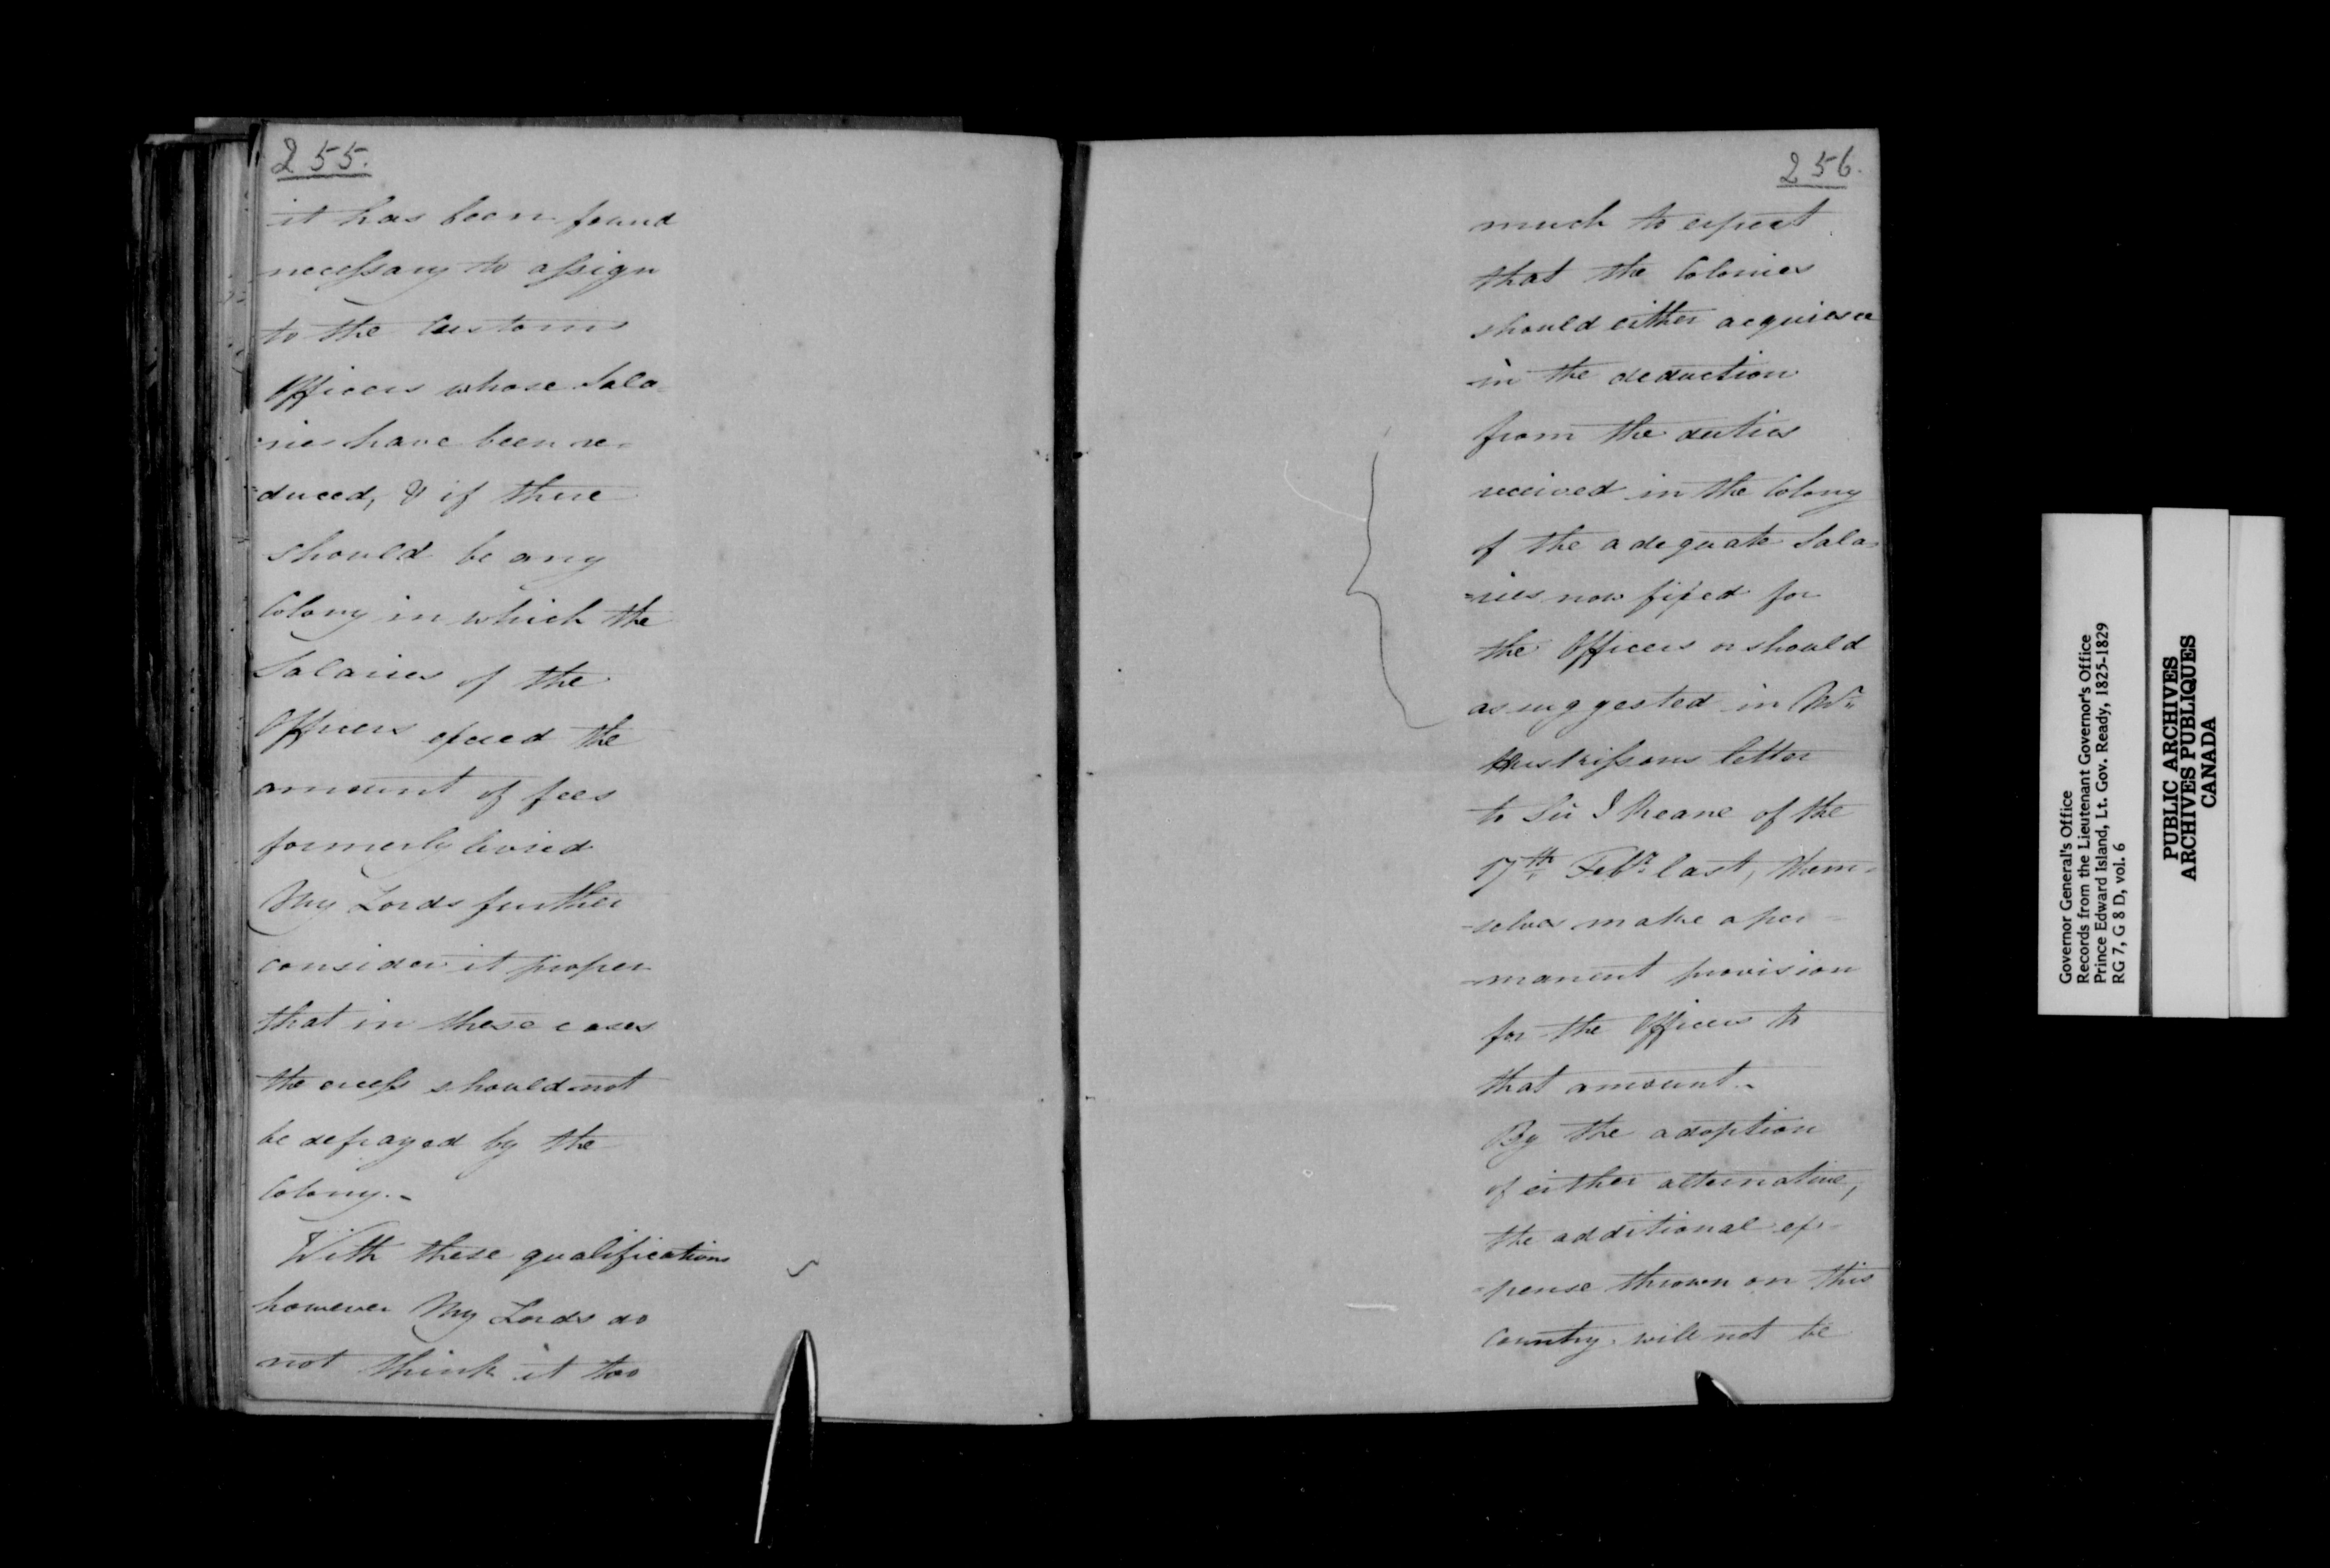 255.
it has been found
necessary to assign
to the Customs
Officers whose Sala
ries have been re-
=duced, & if there
should be any
Colony in which the
Salaries of the
Officers exceed the
amount of fees
formerly levied
My Lords further
consider it proper
that in these cases
the excess should not
be defrayed by the
Colony.-
With these qualifications
however My Lords do
not think it too
256.
much to expect
that the Colonies
should either acquiesce
in the deduction
from the duties
received in the Colony
of the adequate Sala=
=ries now fixed for
the Officers or should
as suggested in Mr.
Huskissons letter
to Sir J Keane of the
17th. Feby. last, them=
-selves make a per-
-manent provision
for the Officers to
that amount.-
By the adoption
of either alternative,
the additional ex-
=pense thrown on this
Country will not be
Governor General's Office
Records from the Lieutenant Governor's Office
Prince Edward Island, Lt. Gov. Ready, 1825-1829
RG 7, G 8 D, vol. 6
PUBLIC ARCHIVES
ARCHIVES PUBLIQUES
CANADA